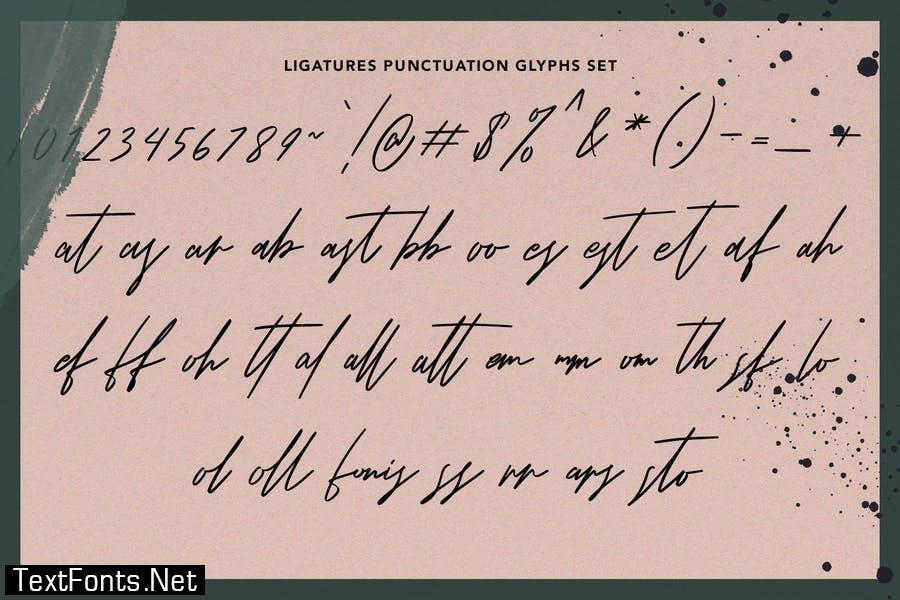 LIGATURES PUNCTUATION GLYPHS SET
0123456789~`!@#$%^&*()-=_+
at as ar ab ast bb oo es est et af ah
ef ff oh tt al all att em mm om th sf lo
ol oll fonis ss rr ars sto
TextFonts.Net